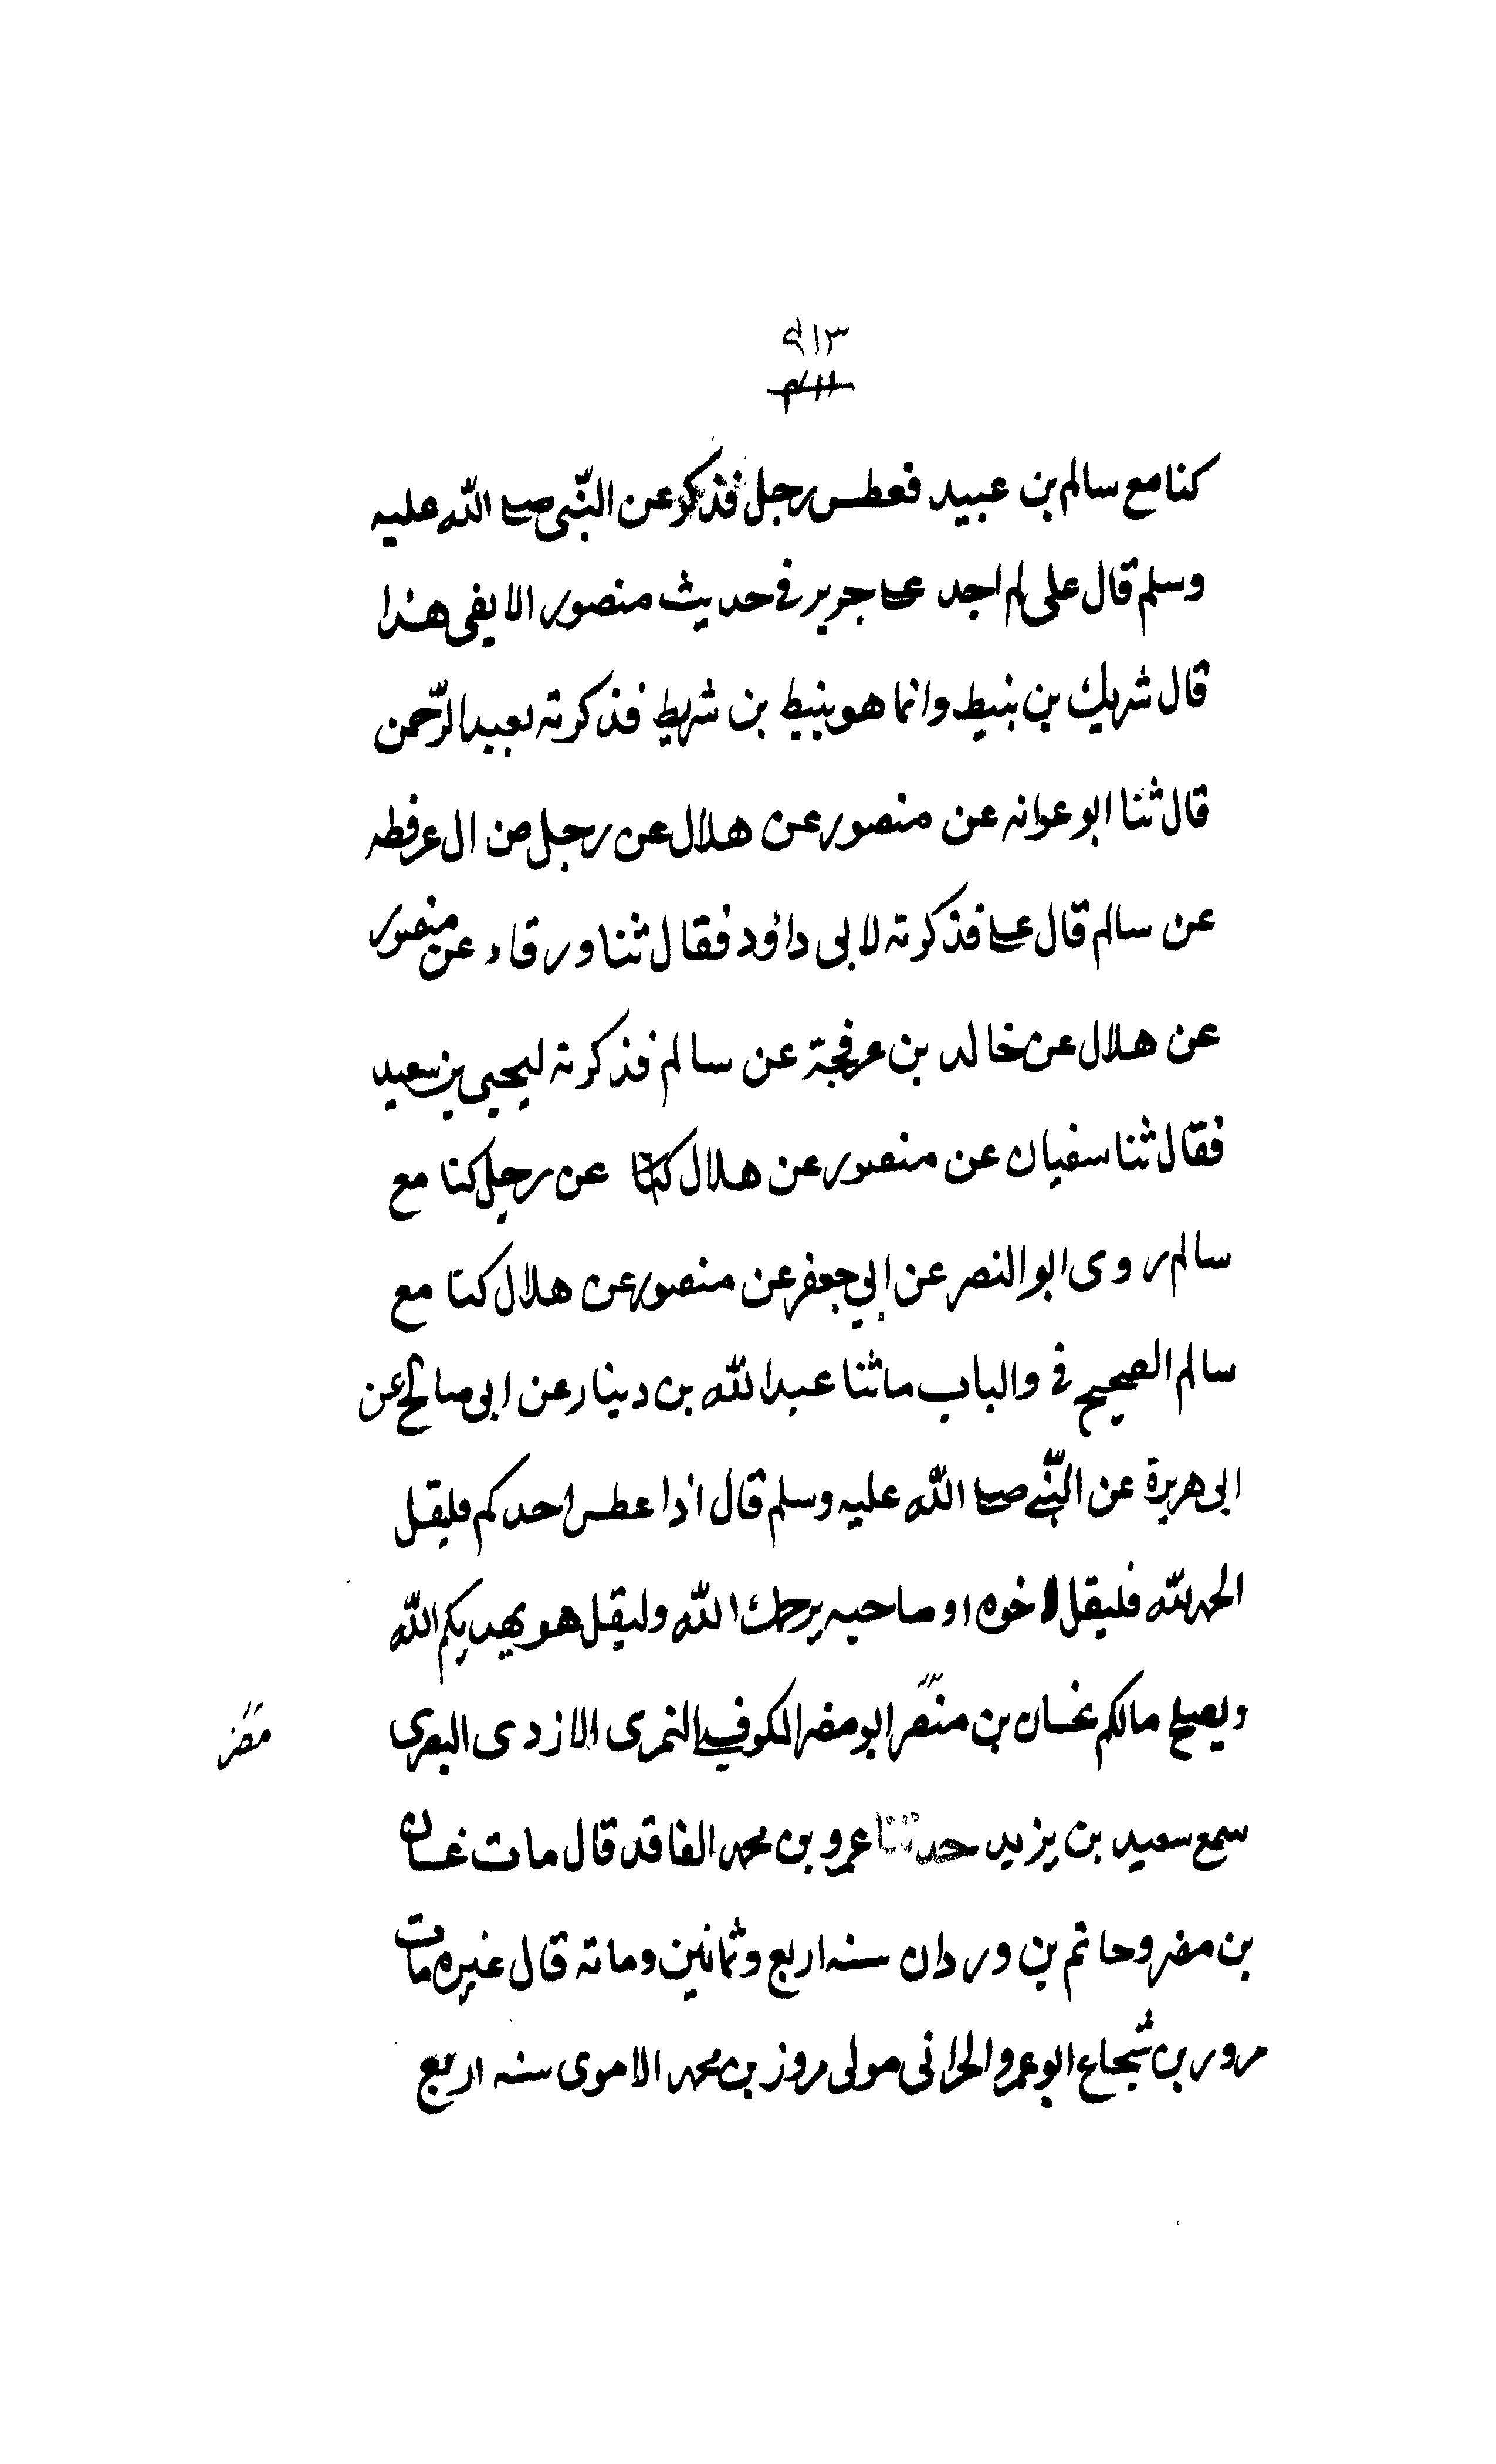 ٣١٩
كنا مع سالم بن عبيد فعطس رجل فذكر عن النبى صلى الله عليه
وسلم قال على لم اجد على جرير في حديث منصور الا يفى هذا
قال شريك بن نبيط وانما هو نبيط بن شريط فذكرته لعبد الرحمن
قال ثنا ابو عوانه عن منصور عن هلال عن رجل من ال عرفطه
عن سالم قال على فذكرته لابى داؤد فقال ثنا ورقاء عن منصور
عن هلال عن خالد بن عرفجة عن سالم فذكرته ليحيى بن سعيد
فقال ثنا سفيان عن منصور عن هلال عن رجل كنا مع
سالم روى ابو النصر عن ابي جعفر عن منصور عن هلال كنا مع
سالم الصحيح في والباب ما ثنا عبد الله بن دينار عن ابى صالح عن
ابى هريرة عن النبي صلى الله عليه وسلم قال اذا عطس احدكم فليقل
الحمد لله فليقل اخوه او صاحبه يرحمك الله وليقل هو يهديكم الله
ويصلح مالكم غسان بن مضر ابو مضر الكوفي النمرى الازدى البصرى
مضر
سمع سعيد بن يزيد حدثنا عمرو بن محمد الفاقد قال مات غسان
بن مضر وحاتم بن وردان سنه اربع وثمانين وماته قال غيره مات
مرور بن شجاع ابو عمرو الحرانى مولى مروز بن محمد الاموى سنه اربع